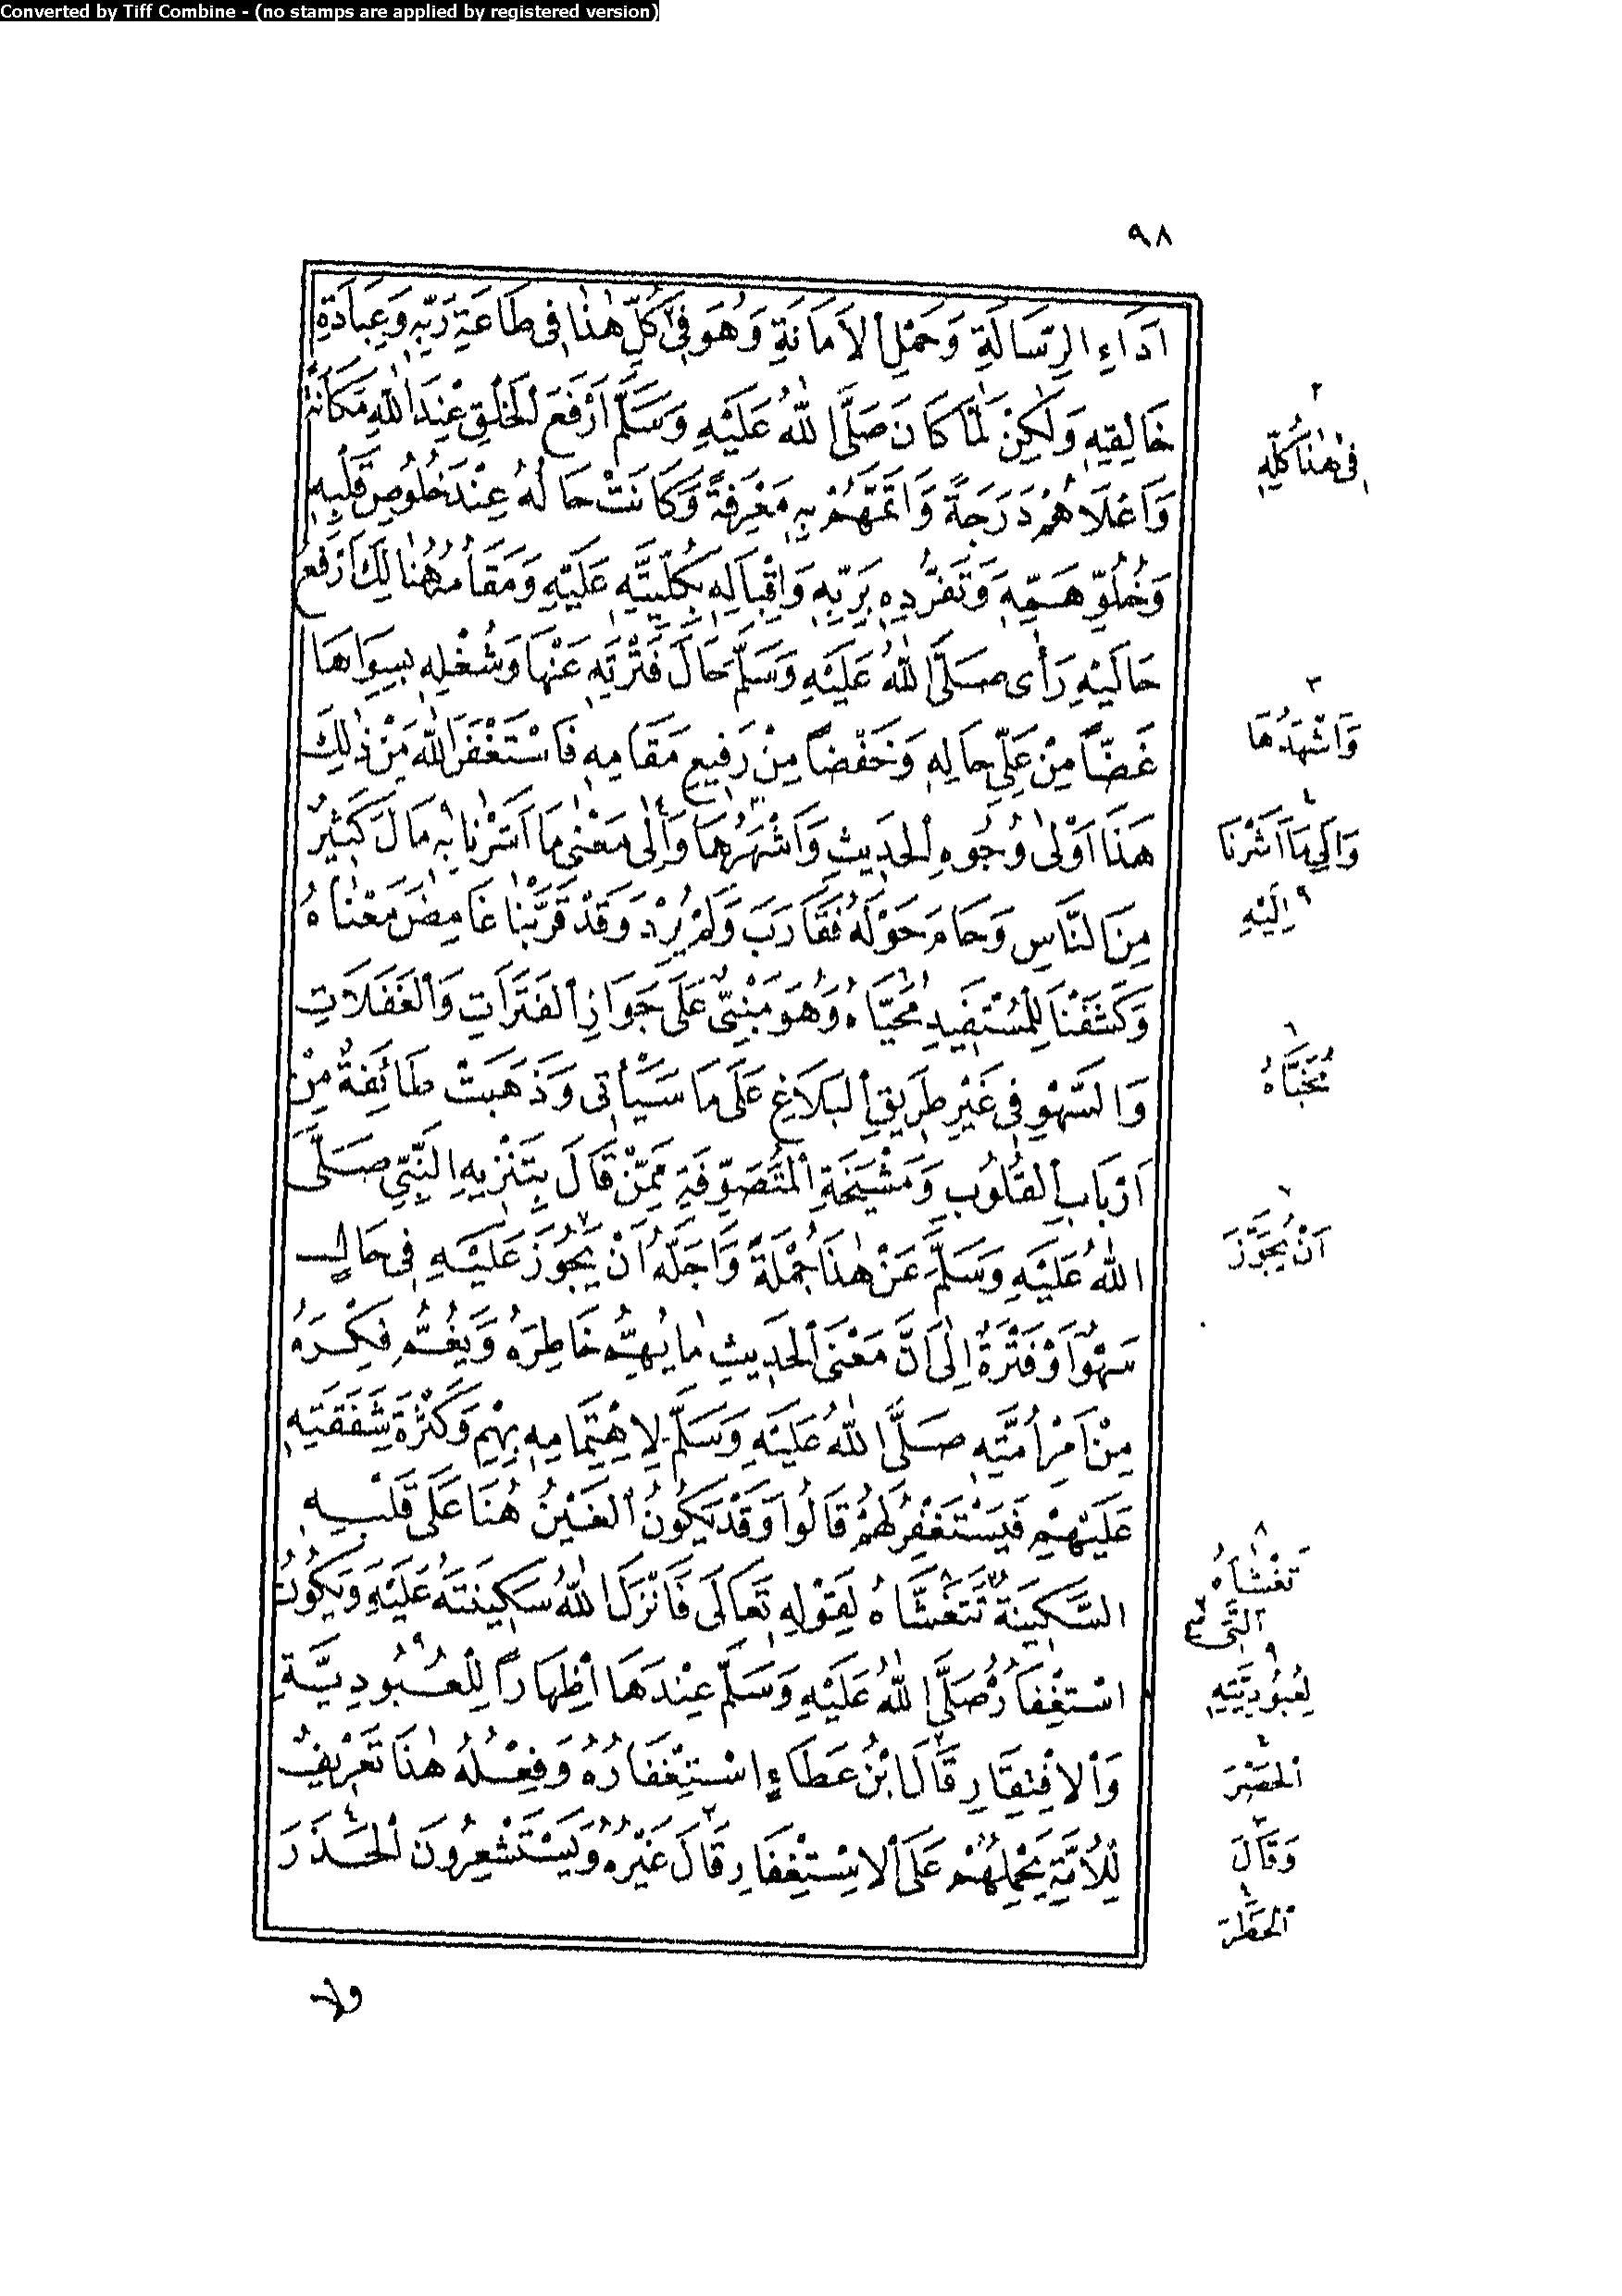 Converted by Tiff Combine - (no stamps are applied by registered version)
٩٨
اَدَاءِ الرِّسَالَةِ وَحَمْلِ الْاَمَانَةِ وَهُوَ فِى كُلِّ هٰذَا فِى طَاعَةِ رَبِّهِ وَعِبَادَةِ
خَالِقِهِ وَلٰكِنْ لَمَّا كَانَ صَلَّى اللّٰهُ عَلَيْهِ وَسَلَّمَ اَرْفَعَ الْخَلْقِ عِنْدَ اللّٰهِ مَكَانَةً
وَاَعْلَاهُمْ دَرَجَةً وَاَتَمَّهُمْ بِهِ مَعْرِفَةً وَكَانَتْ حَالُهُ عِنْدَ خُلُوصِ قَلْبِهِ
وَخُلُوِّ هَمِّهِ وَتَفَرُّدِهِ بِرَبِّهِ وَاِقْبَالِهِ بِكُلِّيَّتِهِ عَلَيْهِ وَمَقَامُهُ هُنَالِكَ اَرْفَعَ
حَالَيْهِ رَأٰى صَلَّى اللّٰهُ عَلَيْهِ وَسَلَّمَ حَالَ فَتْرَتِهِ عَنْهَا وَشُغْلِهِ بِسِوَاهَا
غَضًّا مِنْ عَلِىِّ حَالِهِ وَخَفْضًا مِنْ رَفِيعِ مَقَامِهِ فَاسْتَغْفَرَ اللّٰهَ مِنْ ذٰلِكَ
هَذَا اَوْلٰى وُجُوهِ الْحَدِيثِ وَاَشْهَرُهَا وَاِلٰى مَعْنٰى مَا اَشَرْنَا بِهِ مَالَ كَثِيرٌ
مِنَ النَّاسِ وَحَامَ حَوْلَهُ فَقَارَبَ وَلَمْ يُرِدْ وَقَدْ قَرَّبْنَا غَامِضَ مَعْنَاهُ
وَكَشَفْنَا لِلْمُسْتَفِيدِ مُحَيَّاهُ وَهُوَ مَبْنِىٌّ عَلَى جَوَازِ الْفَتَرَاتِ وَالْغَفَلَاتِ
وَالسَّهْوِ فِى غَيْرِ طَرِيقِ الْبَلَاغِ عَلَى مَا سَيَأْتِى وَذَهَبَتْ طَائِفَةٌ مِنْ
اَرْبَابِ الْقُلُوبِ وَمَشْيَخَةِ الْمُتَصَوِّفَةِ مِمَّنْ قَالَ بِتَنْزِيهِ النَّبِىِّ صَلَّى
اللّٰهُ عَلَيْهِ وَسَلَّمَ عَنْ هٰذَا جُمْلَةً وَاَجَلَّهُ اَنْ يَجُوزَ عَلَيْهِ فِى حَالٍ
سَهْوٌ اَوْ فَتْرَةٌ اِلٰى اَنَّ مَعْنَى الْحَدِيثِ مَا يُهِمُّ خَاطِرَهُ وَيَغُمُّ فِكْرَهُ
مِنْ اَمْرِ اُمَّتِهِ صَلَّى اللّٰهُ عَلَيْهِ وَسَلَّمَ لِاهْتِمَامِهِ بِهِمْ وَكَثْرَةِ شَفَقَتِهِ
عَلَيْهِمْ فَيَسْتَغْفِرُ لَهُمْ قَالُوا وَقَدْ يَكُونُ الْغَيْنُ هُنَا عَلَى قَلْبِهِ
السَّكِينَةَ تَتَغَشَّاهُ لِقَوْلِهِ تَعَالَى فَاَنْزَلَ اللّٰهُ سَكِينَتَهُ عَلَيْهِ وَيَكُونُ
اسْتِغْفَارُهُ صَلَّى اللّٰهُ عَلَيْهِ وَسَلَّمَ عِنْدَهَا اِظْهَارًا لِلْعُبُودِيَّةِ
وَالْاِفْتِقَارِ قَالَ ابْنُ عَطَاءٍ اسْتِغْفَارُهُ وَفِعْلُهُ هٰذَا تَعْرِيفٌ
لِلْاُمَّةِ يَحْمِلُهُمْ عَلَى الْاِسْتِغْفَارِ قَالَ غَيْرُهُ وَيَسْتَشْعِرُونَ الْحَذَرَ
ولا
٢
فِى هٰذَا كُلِّهِ
٣
وَاَشْهَدُهَا
٤
وَاِلَى مَا اَشَرْنَا
٩ اِلَيْهِ
٦
مُخَبَّاهُ
٦
اَنْ يُجَوَّزَ
٨
تَغْشَاهُ
الَّتِى
٩
لِعُبُودِيَّتِهِ
٤
الْحَصْرَ
٢
وَقَالَ
٤
الْحَظْرَ